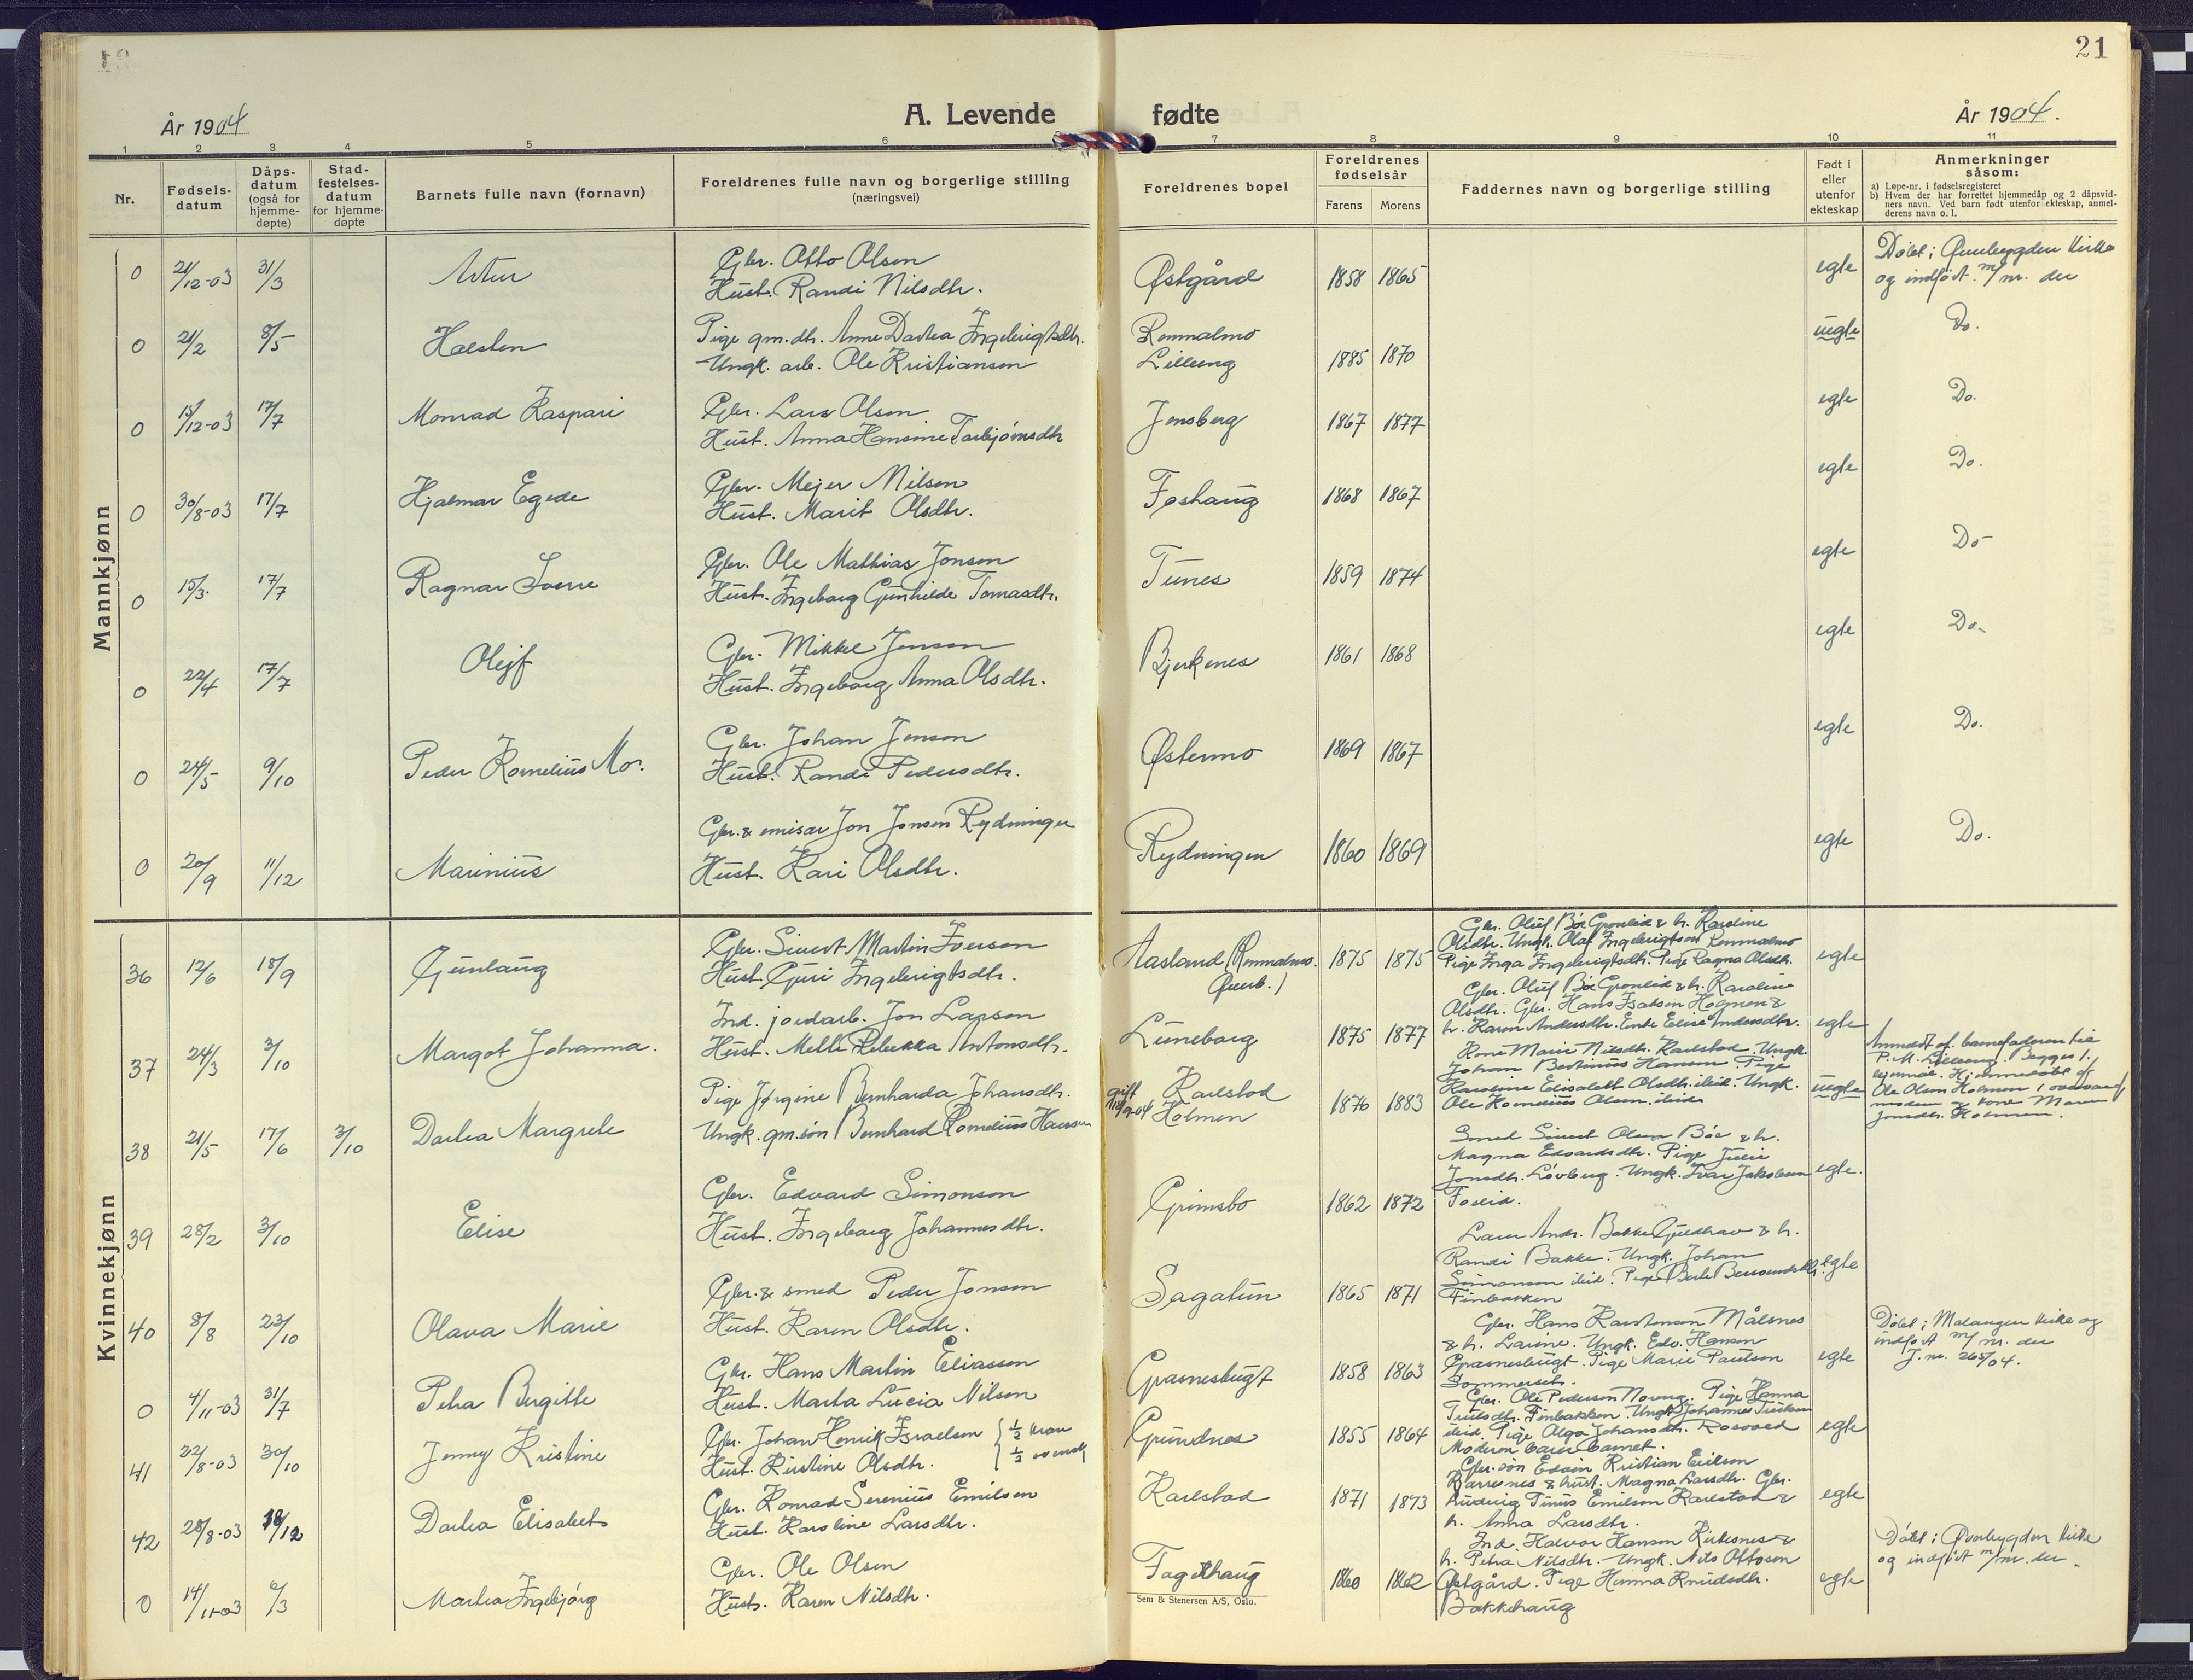 21
År 1904
A. Levende fødte
År 1904.
1 2 3 4 5 6 7 8 9 10 11
Nr.
Fødsels-
datum
Dåps-
datum
(også for
hjemme-
døpte)
Stad-
festelses-
datum
for hjemme-
døpte
Barnets fulle navn (fornavn)
Foreldrenes fulle navn og borgerlige stilling
(næringsvei)
Foreldrenes bopel
Foreldrenes
fødselsår
Farens Morens
Faddernes navn og borgerlige stilling
Født i
eller
utenfor
ekteskap
Anmerkninger
såsom:
a) Løpe-nr. i fødselsregisteret
b) Hvem der har forrettet hjemmedåp og 2 dåpsvid-
ners navn. Ved barn født utenfor ekteskap, anmel-
derens navn o. l.
Mannkjønn
0 21/12-03 31/3 Artur
Gbr. Otto Olsen
Hust. Randi Nilsdtr.
Østgård 1858 1865 egte
Døbt i Øverbygden kirke
og indført m/nr. der
0 21/2 8/5 Halsten
Pige gm.dtr. Anne Dartea Ingebrigtsdtr.
Ungk. arb. Ole Kristiansen
Rommalmo
Lilleeng 1885 1870 uegte Do.
0 15/12-03 17/7 Monrad Kaspari
Gbr. Lars Olsen
Hust. Anna Hansine Torbjørnsdtr
Jensberg 1867 1877 egte Do.
0 30/8-03 17/7 Hjalmar Egede
Gbr. Mejer Nilsen
Hust. Marit Olsdtr.
Foshaug 1868 1867 egte Do.
0 15/3 17/7 Ragnar Sverre
Gbr. Ole Mathias Jonsen
Hust. Ingeborg Gunhilde Tomasdtr.
Tunes 1859 1874 egte Do-
0 22/4 17/7 Olejf
Gbr. Mikkel Jensen
Hust. Ingeborg Anna Olsdtr.
Bjerkenes 1861 1868 egte Do-
0 24/5 9/10 Peder Kornelius Mo.
Gbr. Johan Jenson
Hust. Randi Pedersdtr.
Østermo 1869 1867 egte Do.
0 20/9 11/12 Marinius
Gbr. & emisær Jon Jonsen Rydninger
Hust. Kari Olsdtr.
Rydningen 1860 1869 egte Do.
Kvinnekjønn
36 12/6 18/9 Gunlaug
Gbr. Sivert Martin Iverson
Hust. Guri Ingebrigtsdtr.
Aasland (Rommalmo.
Øverb.) 1875 1875
Gbr. Oluf Bøe Grønlid & h. Karoline
Olsdtr. Ungk. Olaf Ingebrigtson Rommalmo
Pige Inga Ingebrigtsdtr. Pige Ragna Olsdtr.
egte
37 24/3 3/10 Margot Johanna.
Ind. jordarb. Jon Larson
Hust. Mette Rebekka Antonsdtr.
Luneborg 1875 1877
Gbr. Oluf Bøe Grønlid & h. Karoline
Olsdtr. Gbr. Hans Isakson Holmen &
h. Karen Andersdtr. Enke Elise Andersdtr.
egte
38 21/5 17/6 3/10 Dorthea Margrete
Pige Jørgine Bernharda Johansdtr.
Ungk. gm.søn Bernhard Kornelius Hanson
gift 12/9-04 Karlstad
Holmen 1870 1883
Kone Marie Nilsdtr. Karlstad. Ungk.
Johan Bertinius Hansen. Pige
Karoline Elisabett Olsdtr. ibid. Ungk.
Ole Kornelius Olsen. ibid.
uegte
Anmeldt af barnefaderen til
P. M. Lilleeng. Begges 1.
Hjemmedøbt af
Ole Olsen Holmen i overvær af
moderen & kone Maren
Jonsdtr. Holmen.
39 28/2 3/10 Elise
Gbr. Edvard Simonson
Hust. Ingeborg Johannesdtr.
Grimsbo 1862 1872
Smed Sivert Olsen Bøe & h.
Magna Edvardsdtr. Pige Julie
Jonsdtr. Løvberg. Ungk. Ivar Jakobsen
Foslid.
egte.
40 8/8 23/10 Olava Marie
Gbr. & smed Peder Jonson
Hust. Karen Olsdtr.
Sagatun 1865 1871
Lars Andr. Bakke Guldhav & h.
Randi Bakke. Ungk. Johan
Simonson ibid. Pige Berte Bersvendsdtr.
Finbakken
egte
0 4/11-03 31/7 Petra Bergitte
Gbr. Hans Martin Eliassen
Hust. Marta Lucia Nilsen
Grasnesbugt 1858 1863
Gbr. Hans Karstensen Målsnes
& h. Larine. Ungk. Edv. Hansen
Grasnesbugt. Pige Marie Paulsen
Sommerset.
egte
Døbt i Malangen kirke og
indført m/ nr. der
J. nr. 265/04.
41 22/8-03 30/10 Jenny Kristine
Gbr. Johan Henrik Israelsen { 1/2 kvæn
Hust. Kirstine Olsdtr. { 1/2 svensk
Grundnes 1855 1864
Gbr. Ole Pederson Moeng. Pige Hanna
Trulsdtr. Finbakken. Ungk. Johannes Trulsen
ibid. Pige Olga Johansdtr. Rosvold
Moderen bærer barnet.
egte
42 28/8-03 18/12 Dorthea Elisabet
Gbr. Konrad Serenius Emilsen
Hust. Karoline Larsdtr.
Karlstad 1871 1873
Gbr.søn Edvin Kristian Eilsen
Karnes & hust. Magna Larsdtr. Gbr.
Ludvig Tinus Emilson Karlstad &
h. Anna Larsdtr.
egte
0 14/11-03 6/3 Martea Ingebjørg
Gbr. Ole Olsen
Hust. Karen Nilsdtr.
Fagerhaug 1860 1862
Ind. Halvor Hanson Kirkesnes &
h. Petra Nilsdtr. Ungk. Nils Ottosen
Østgård. Pige Hanna Knudsdtr.
Bakkehaug
egte
Døbt i Øverbygden kirke
og indført m/nr. der.
Sem & Stenersen A/S, Oslo.